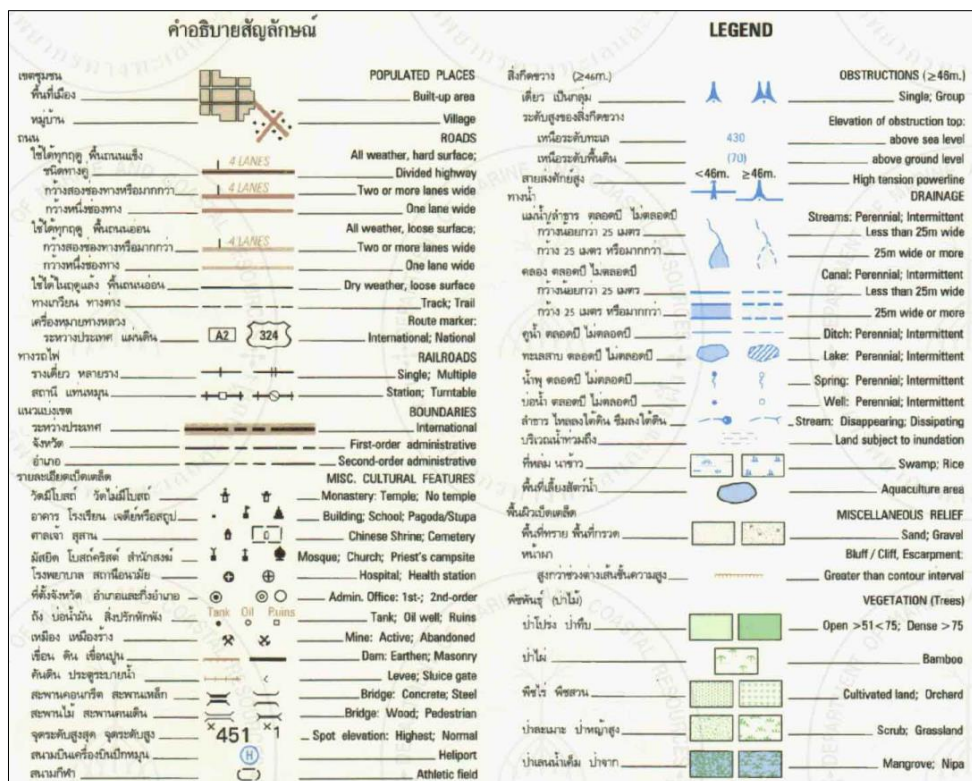 คำอธิบายสัญลักษณ์
เขตชุมชน POPULATED PLACES
พื้นที่เมือง Built-up area
หมู่บ้าน Village
ถนน ROADS
ใช้ได้ทุกฤดู พื้นถนนแข็ง All weather, hard surface;
ชนิดทางคู่ 4 LANES Divided highway
กว้างสองช่องทางหรือมากกว่า 4 LANES Two or more lanes wide
กว้างหนึ่งช่องทาง One lane wide
ใช้ได้ทุกฤดู พื้นถนนอ่อน All weather, loose surface;
กว้างสองช่องทางหรือมากกว่า 4 LANES Two or more lanes wide
กว้างหนึ่งช่องทาง One lane wide
ใช้ได้ในฤดูแล้ง พื้นถนนอ่อน Dry weather, loose surface
ทางเกวียน ทางต่าง Track; Trail
เครื่องหมายทางหลวง Route marker:
ระหว่างประเทศ แผ่นดิน A2 324 International; National
ทางรถไฟ RAILROADS
รางเดี่ยว หลายราง Single; Multiple
สถานี แท่นหมุน Station; Turntable
แนวแบ่งเขต BOUNDARIES
ระหว่างประเทศ International
จังหวัด First-order administrative
อำเภอ Second-order administrative
รายละเอียดเบ็ดเตล็ด MISC. CULTURAL FEATURES
วัดมีโบสถ์ วัดไม่มีโบสถ์ Monastery: Temple; No temple
อาคาร โรงเรียน เจดีย์หรือสถูป Building; School; Pagoda/Stupa
ศาลเจ้า สุสาน Chinese Shrine; Cemetery
มัสยิด โบสถ์คริสต์ สำนักสงฆ์ Mosque; Church; Priest's campsite
โรงพยาบาล สถานีอนามัย Hospital; Health station
ที่ตั้งจังหวัด อำเภอและกิ่งอำเภอ Admin. Office: 1st-; 2nd-order
ถัง บ่อน้ำมัน สิ่งปรักหักพัง Tank Oil Ruins Tank; Oil well; Ruins
เหมือง เหมืองร้าง Mine: Active; Abandoned
เขื่อน ดิน เขื่อนปูน Dam: Earthen; Masonry
คันดิน ประตูระบายน้ำ Levee; Sluice gate
สะพานคอนกรีต สะพานเหล็ก Bridge: Concrete; Steel
สะพานไม้ สะพานคนเดิน Bridge: Wood; Pedestrian
จุดระดับสูงสุด จุดระดับสูง ×451 ×1 Spot elevation: Highest; Normal
สนามบินเครื่องบินปีกหมุน H Heliport
สนามกีฬา Athletic field
LEGEND
สิ่งกีดขวาง (≥46m.) OBSTRUCTIONS (≥46m.)
เดี่ยว เป็นกลุ่ม Single; Group
ระดับสูงของสิ่งกีดขวาง Elevation of obstruction top:
เหนือระดับทะเล 430 above sea level
เหนือระดับพื้นดิน (70) above ground level
<46m. ≥46m.
สายส่งศักย์สูง High tension powerline
ทางน้ำ DRAINAGE
แม่น้ำ/ลำธาร ตลอดปี ไม่ตลอดปี Streams: Perennial; Intermittent
กว้างน้อยกว่า 25 เมตร Less than 25m wide
กว้าง 25 เมตร หรือมากกว่า 25m wide or more
คลอง ตลอดปี ไม่ตลอดปี Canal: Perennial; Intermittent
กว้างน้อยกว่า 25 เมตร Less than 25m wide
กว้าง 25 เมตร หรือมากกว่า 25m wide or more
คูน้ำ ตลอดปี ไม่ตลอดปี Ditch: Perennial; Intermittent
ทะเลสาบ ตลอดปี ไม่ตลอดปี Lake: Perennial; Intermittent
น้ำพุ ตลอดปี ไม่ตลอดปี Spring: Perennial; Intermittent
บ่อน้ำ ตลอดปี ไม่ตลอดปี Well: Perennial; Intermittent
ลำธาร ไหลลงใต้ดิน ซึมลงใต้ดิน Stream: Disappearing; Dissipating
บริเวณน้ำท่วมถึง Land subject to inundation
ที่หล่ม นาข้าว Swamp; Rice
พื้นที่เลี้ยงสัตว์น้ำ Aquaculture area
พื้นผิวเบ็ดเตล็ด MISCELLANEOUS RELIEF
พื้นที่ทราย พื้นที่กรวด Sand; Gravel
หน้าผา Bluff / Cliff, Escarpment:
สูงกว่าช่วงต่างเส้นชั้นความสูง Greater than contour interval
พืชพันธุ์ (ป่าไม้) VEGETATION (Trees)
ป่าโปร่ง ป่าทึบ Open >51<75; Dense >75
ป่าไผ่ Bamboo
พืชไร่ พืชสวน Cultivated land; Orchard
ป่าละเมาะ ป่าหญ้าสูง Scrub; Grassland
ป่าเลนน้ำเค็ม ป่าจาก Mangrove; Nipa